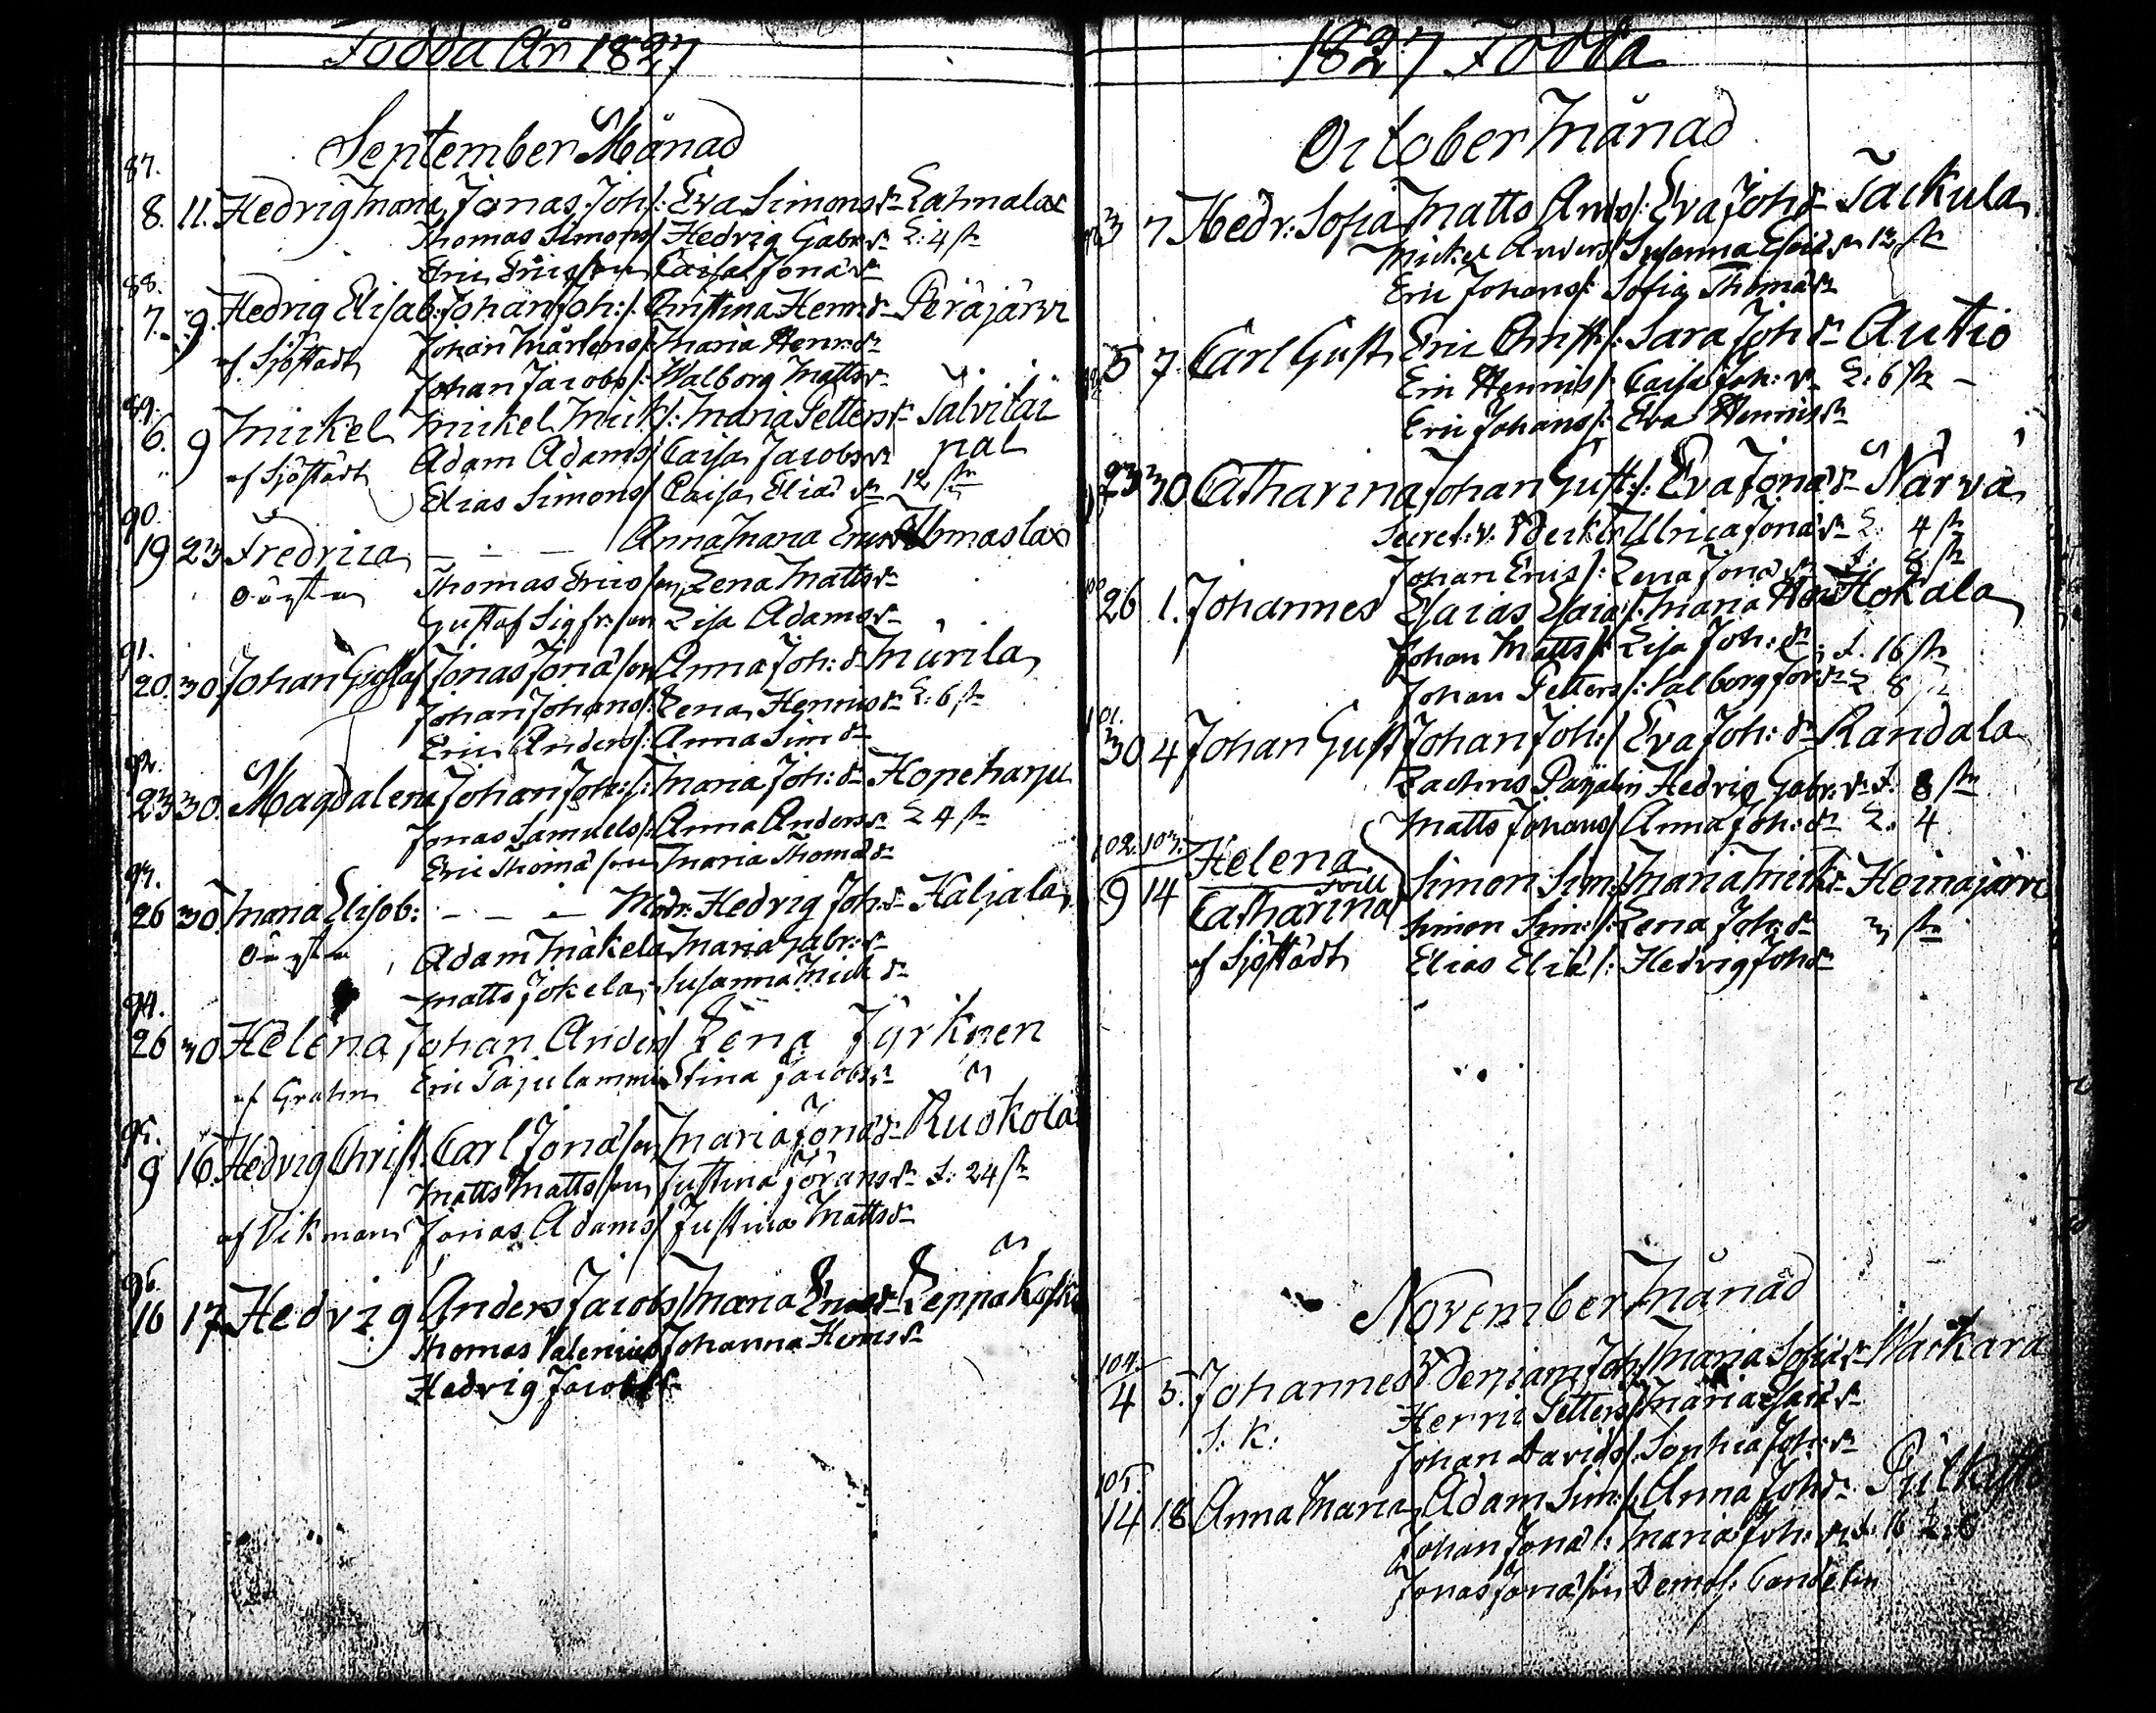 Födda År 1827
September Månad
87.
8. 11. Hedrig Maria Jonas Joh/: Eva Simonsdr Lahnalax
Thomas Simons/ Hedvig Gabr.dr L: 4 st
Eric Ericsson Caisa Jonædr
88.
7. 9. Hedvig Elisab: Johan Joh:/: Christina Henr:dr Peräjärvi
af Sjöstadt Johan Mårtens/: Maria Henr:dr
Johan Jacobs/: Walborg Mattsdr
89.
6. 9 Mickel Mickel Mick/: Maria Pettersdr Talvitai
Adam Adams/ Caisa Jacobsdr pal
af Sjöstadt Elias Simons/ Caisa Eliædr 12 st
90.
19 23 Fredrica — — — Anna Maria Ericsdr Ulmaslax
oägta Thomas Ericsson, Lena Mattsdr
Gustaf Sigfr:son Lisa Adamsdr
91.
20. 30 Johan Gustaf Jonas Jonæson Anna Joh:dr Murila
Johan Johans/: Lena Hennisdr L: 6 st
Eric Anders/: Anna Simdr
92.
23 30. Magdalena Johan Joh:/: Maria Joh:dr Kopeharju
Jonas Samuels/: Anna Andersdr L 4 st
Eric Thomæson Maria Thomædr
93.
26 30. Maria Elisab: — — — Modr: Hedvig Joh:dr Haljala
oägta Adam Mäkelä Maria Gabr:dr
Matts Jokela, Susanna Mickdr
94.
26 30 Helena Johan Anders/ Lena Jyrkinen
af Grahn Eric Pajulammi Stina Jacobsdr
95.
9 16. Hedvig Christ. Carl Jonæson Maria Jonædr Ruokola
Matts Mattsson Justina Göransdr S: 24 st
af Vikman Jonas Adams/ Justina Mattsdr
96.
16 17 Hedvig Anders Jacobs/ Maria Ericsdr Leppäkoski
Thomas Valenius Johanna Henrsdr
Hedvig Jacobsdr
1827 Födda
October Månad
3 7 Hedr: Sofia Matts Ands/: Eva Johdr Tackula
Mickel Anders/ Susanna Esaiædr 12 st
Eric Johans/: Sofia Thomædr
5 7. Carl Gust Eric Christ/: Sara Johdr Autio
Eric Hennis/: Caisa Joh:dr L: 6 st —
Eric Johans/: Eva Hennisdr
23 30 Catharina Johan Gust:/: Eva Jonædr Närvä
Secret: v. Becker Ulrica Jonædr L: 4 st
Johan Erics/: Lena Jonædr S: 8 st
26 1. Johannes Esaias Esaiæ/: Maria Hen Hokala
Johan Matts/: Lisa Joh:dr S. 16 st
Johan Petters/: Valborg Jördr L 8
101.
30 4 Johan Gust Johan Joh:/ Eva Joh:dr Randala
Zachris Pajalin Hedvig Gabr:dr S: 8 st
Matts Johans/ Anna Joh:dr L: 4
102. 103.
Helena
9 14 Tvill Simon Sim:/ Maria Mickdr Heinäjärvi
Catharina Simon Sim:/: Lena Johsdr 3 st
af Sjöstadt Elias Eliæ/: Hedvig Johdr
November Månad
104.
4 5. Johannes Benjam Joh/ Maria Sofiædr Wackara
S: K: Henric Petters/ Maria Esaiædr
Johan Davids/: Sophia Joh:dr
105.
14 18 Anna Maria Adam Sim:/: Anna Johdr Pitkästi
Johan Jonæ/: Maria Joh:dr S: 16 L: 6
Jonas Jonæson Demos: Candelin